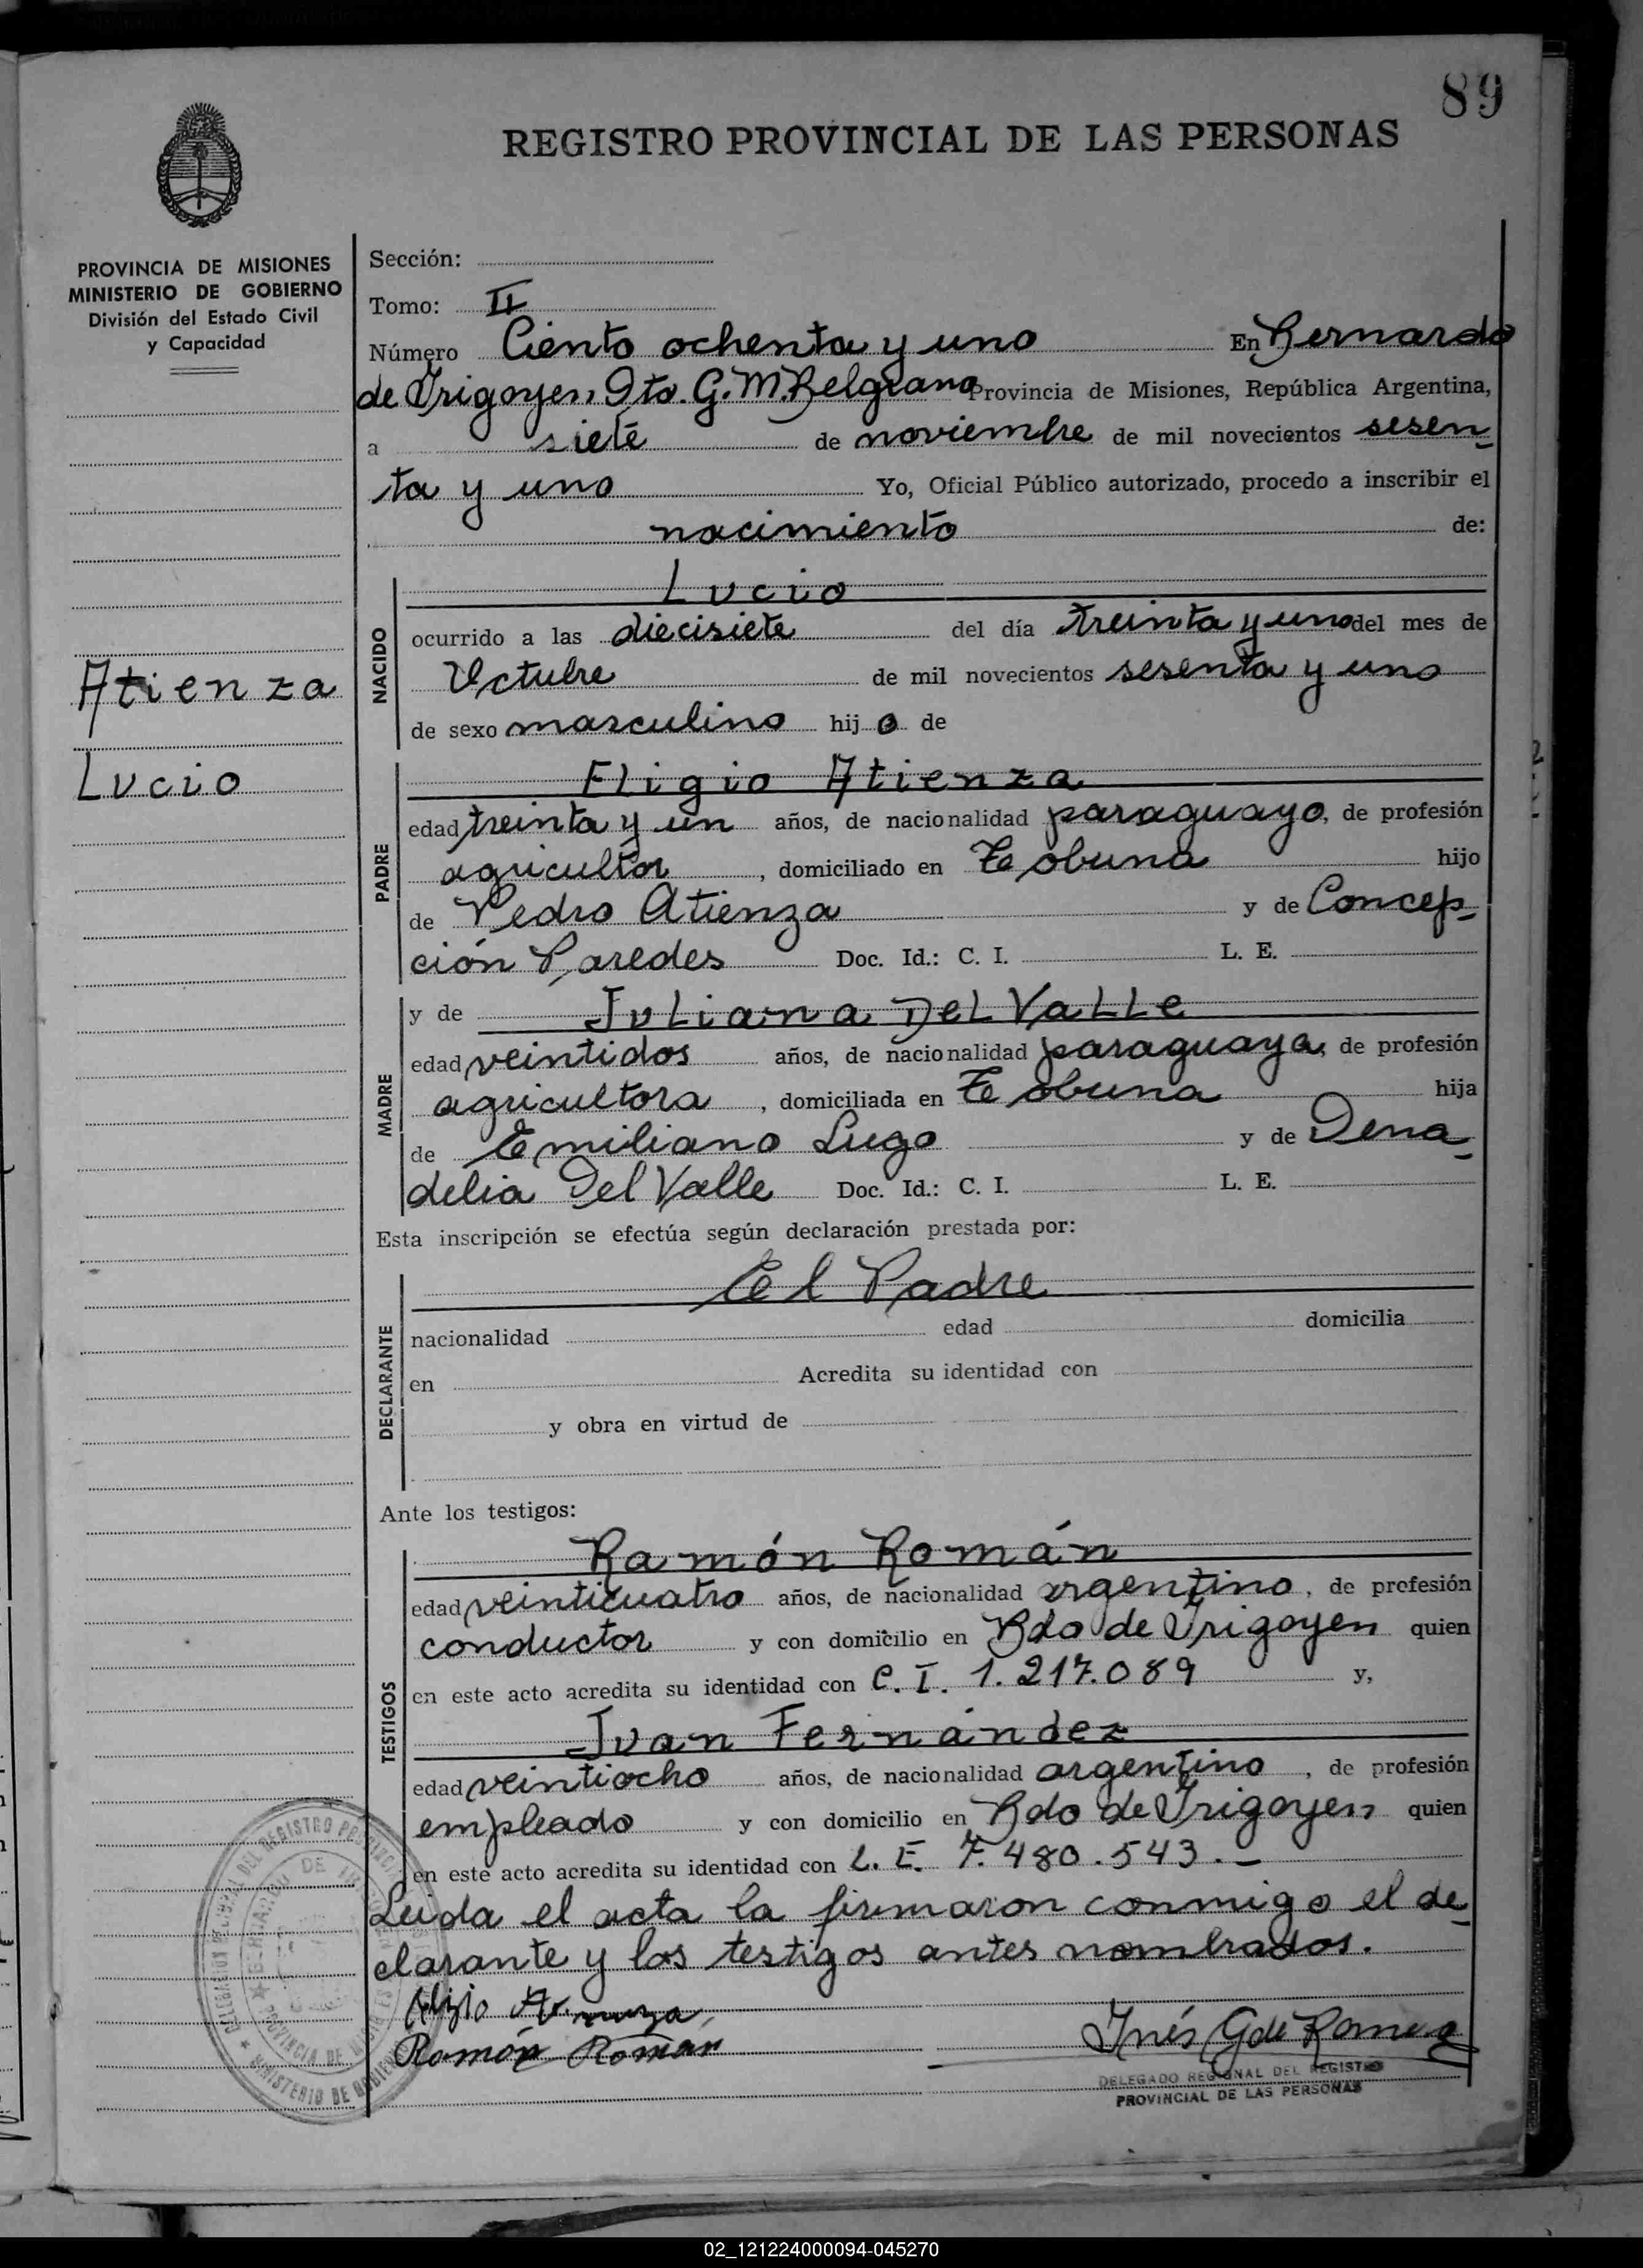 89
REGISTRO PROVINCIAL DE LAS PERSONAS
PROVINCIA DE MISIONES
MINISTERIO DE GOBIERNO
División del Estado Civil
y Capacidad
Atienza
Lucio
Sección:
Tomo: II
Número Ciento ochenta y uno En Bernardo
de Irigoyen, Dto. G. M. Belgrano Provincia de Misiones, República Argentina,
a siete de noviembre de mil novecientos sesen-
ta y uno Yo, Oficial Público autorizado, procedo a inscribir el
nacimiento de:
NACIDO
Lucio
ocurrido a las diecisiete del día treinta y uno del mes de
Octubre de mil novecientos sesenta y uno
de sexo masculino hijo de
PADRE
Eligio Atienza
edad treinta y un años, de nacionalidad paraguayo, de profesión
agricultor, domiciliado en Tobuna hijo
de Pedro Atienza y de Concep-
ción Paredes Doc. Id.: C. I. L. E.
MADRE
y de Juliana Del Valle
edad veintidos años, de nacionalidad paraguaya, de profesión
agricultora, domiciliada en Tobuna hija
de Emiliano Lugo y de Dena-
delia Del Valle Doc. Id.: C. I. L. E.
Esta inscripción se efectúa según declaración prestada por:
DECLARANTE
El Padre
nacionalidad edad domicilia
en Acredita su identidad con
y obra en virtud de
Ante los testigos:
TESTIGOS
Ramón Román
edad veinticuatro años, de nacionalidad argentino, de profesión
conductor y con domicilio en Bdo de Irigoyen quien
en este acto acredita su identidad con C. I. 1.217.089 y,
Juan Fernández
edad veintiocho años, de nacionalidad argentino, de profesión
empleado y con domicilio en Bdo de Irigoyen quien
en este acto acredita su identidad con L. E. 7.480.543.-
Leida el acta la firmaron conmigo el de-
clarante y los testigos antes nombrados.
Ramón Roman
Inés G de Romero
DELEGADO REGIONAL DEL REGISTRO
PROVINCIAL DE LAS PERSONAS
02_121224000094-045270